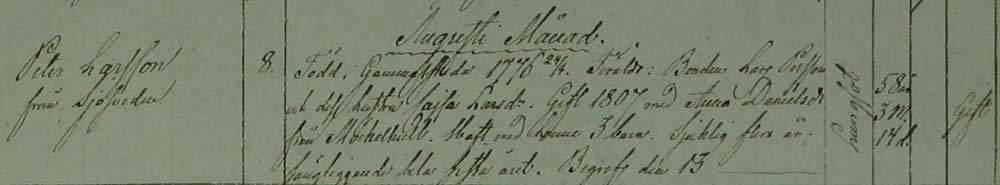 Augusti Månad.
Peter Larsson
från Sjösveden
8. Född i Gammalstada 1776 24/4. Föräldr: Bonden Lars Persson
och dess hustru Cajsa Larsdr. Gift 1807 med Anna Danielsdr
från Möckelhult. Haft med henne 3 barn. Sjuklig flera år;
sängliggande hela sista året. Begrofs den 13
Lungsot
58 år
3 m.
14 d.
Gift